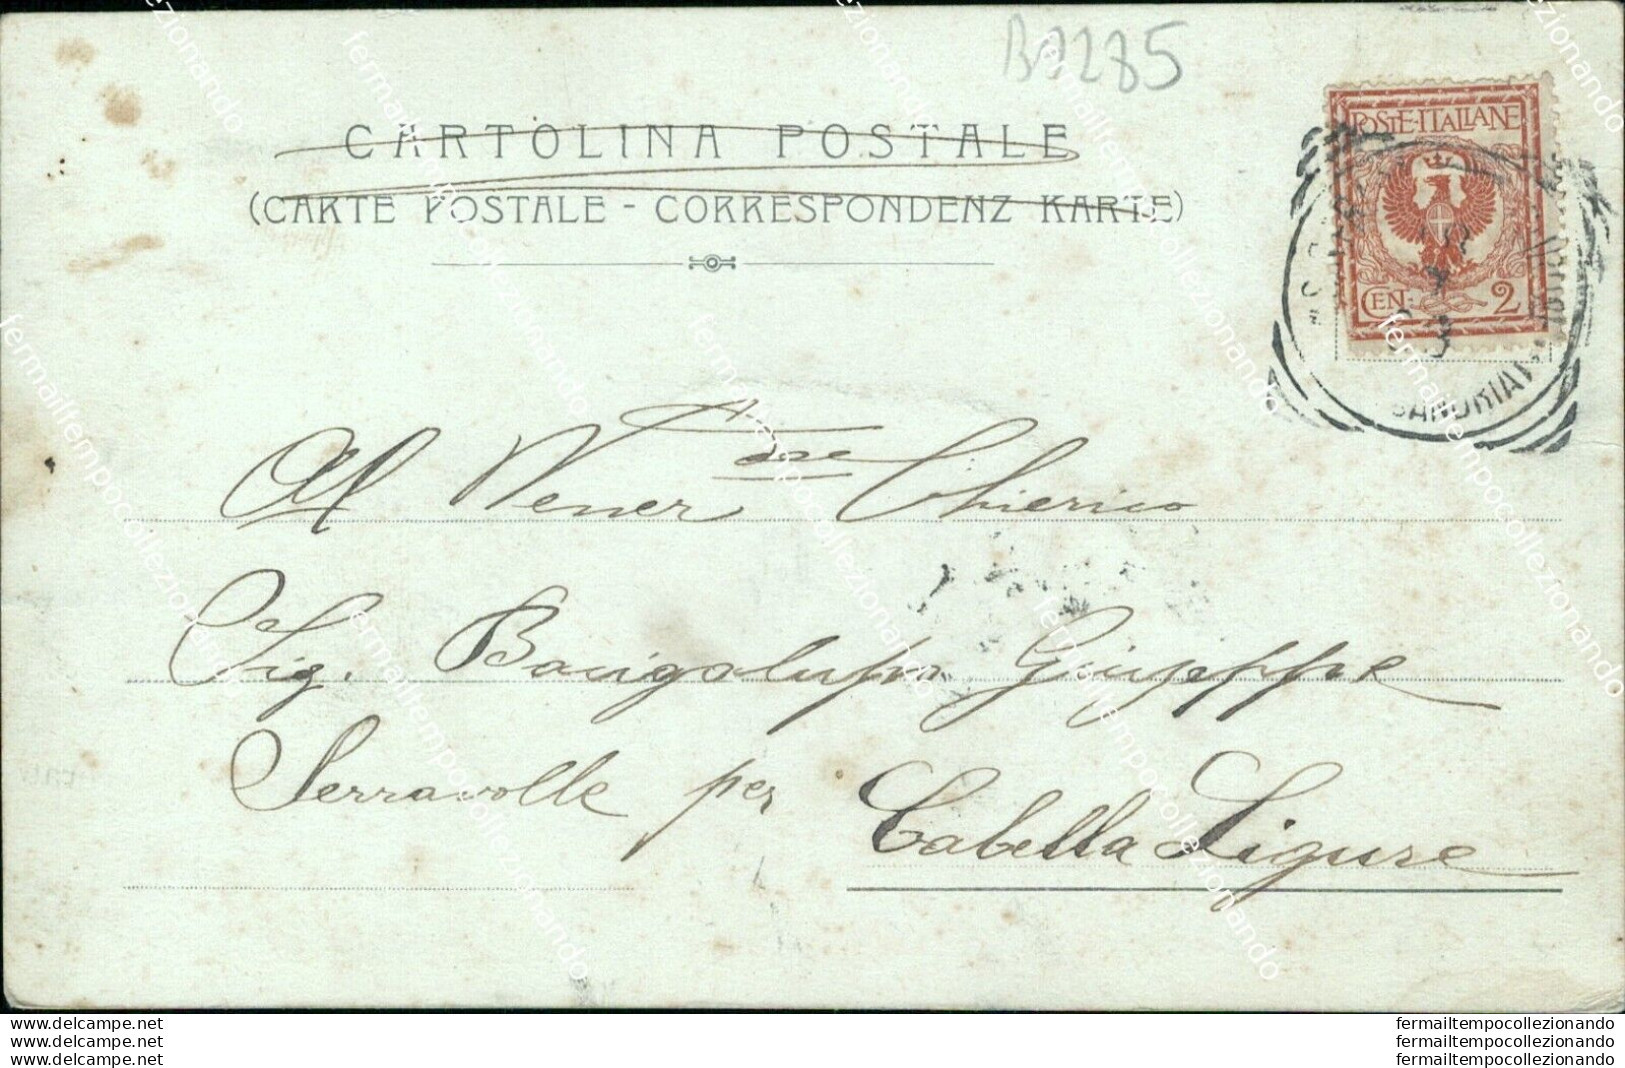 B9285
CARTOLINA POSTALE
(CARTE POSTALE - CORRESPONDENZ KARTE)
POSTE·ITALIANE
CEN: 2
Al Vener
Chierico
Sig. Bacigalupo Giuseppe
Serravalle per Cabella Ligure
www.delcampe.net
www.delcampe.net
www.delcampe.net
fermailtempocollezionando
fermailtempocollezionando
fermailtempocollezionando